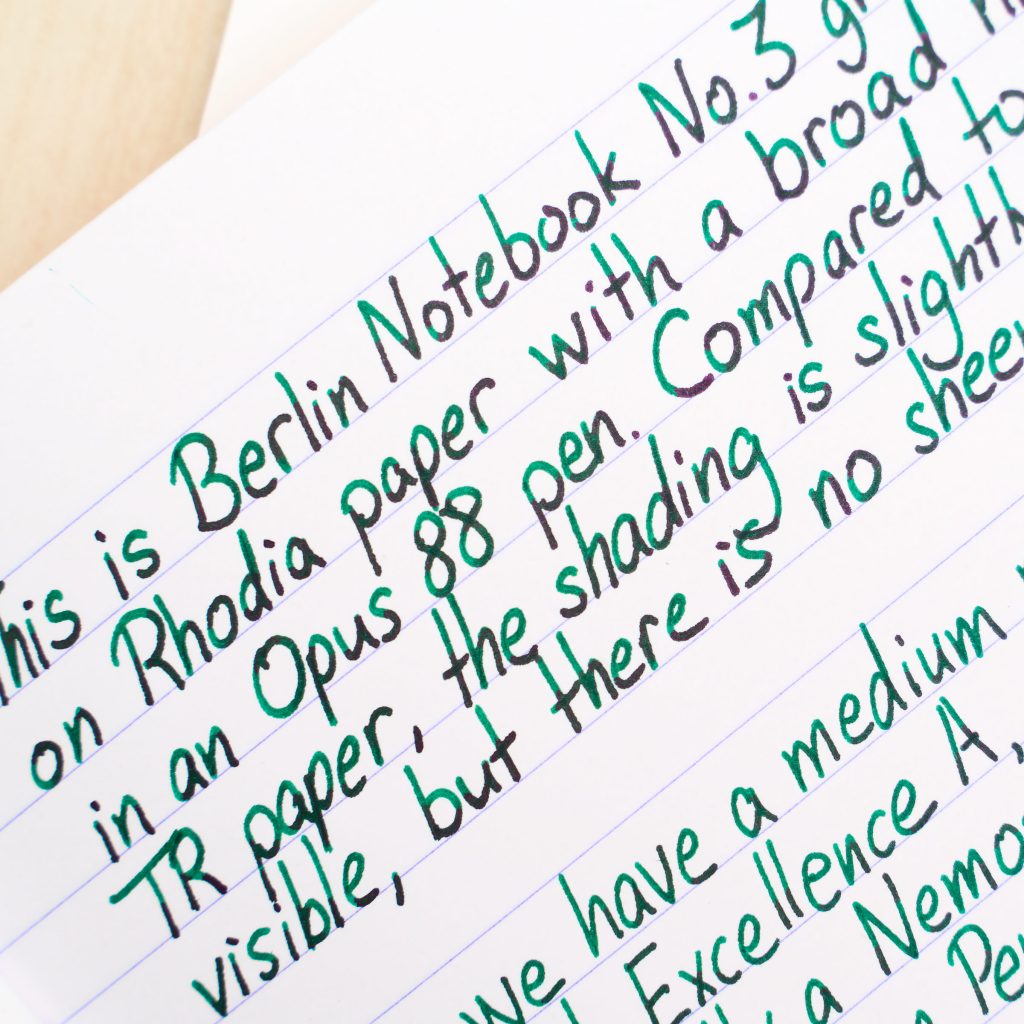 This is Berlin Notebook No.3
on Rhodia paper with a broad
in an Opus 88 pen. Compared to
TR paper, the shading is
visible, but there is no
We have a medium
Excellence A,
a